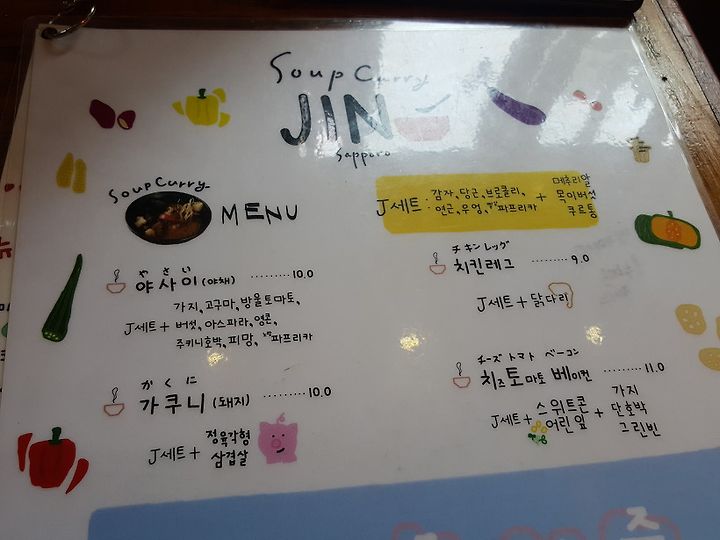 Soup Curry
JIN
Sapporo
Soup Curry
MENU
J세트 : 감자, 당근, 브로콜리, 연근, 우엉, 파프리카 + 메추리알 목이버섯 쿠르통
やさい
야사이 (야채) ......... 10.0
가지, 고구마, 방울토마토,
J세트 + 버섯, 아스파라, 영콘,
주키니호박, 피망, 파프리카
チキンレッグ
치킨레그 ......... 9.0
J세트 + 닭다리
かくに
가쿠니 (돼지) ......... 10.0
J세트 + 정육각형 삼겹살
チーズ トマト ベーコン
치즈 토마토 베이컨 ......... 11.0
J세트 + 스위트콘 어린잎 + 가지 단호박 그린빈